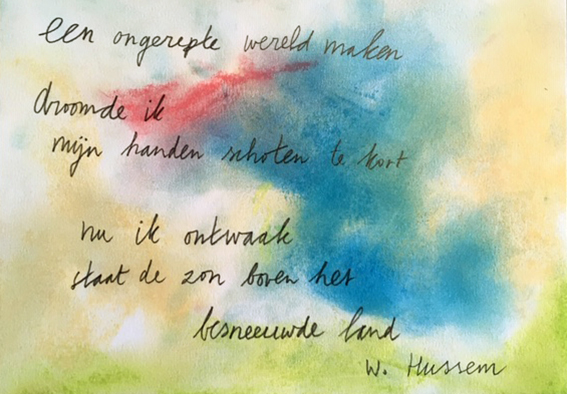 een ongerepte wereld maken
droomde ik
mijn handen schoten te kort
nu ik ontwaak
staat de zon boven het
besneeuwde land
W. Hussem